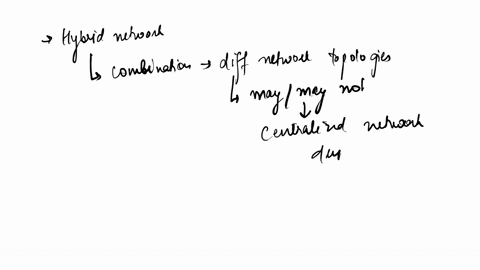 → Hybrid network
↳ combination → diff network topologies
↳ may/may not
↓
Centralized network